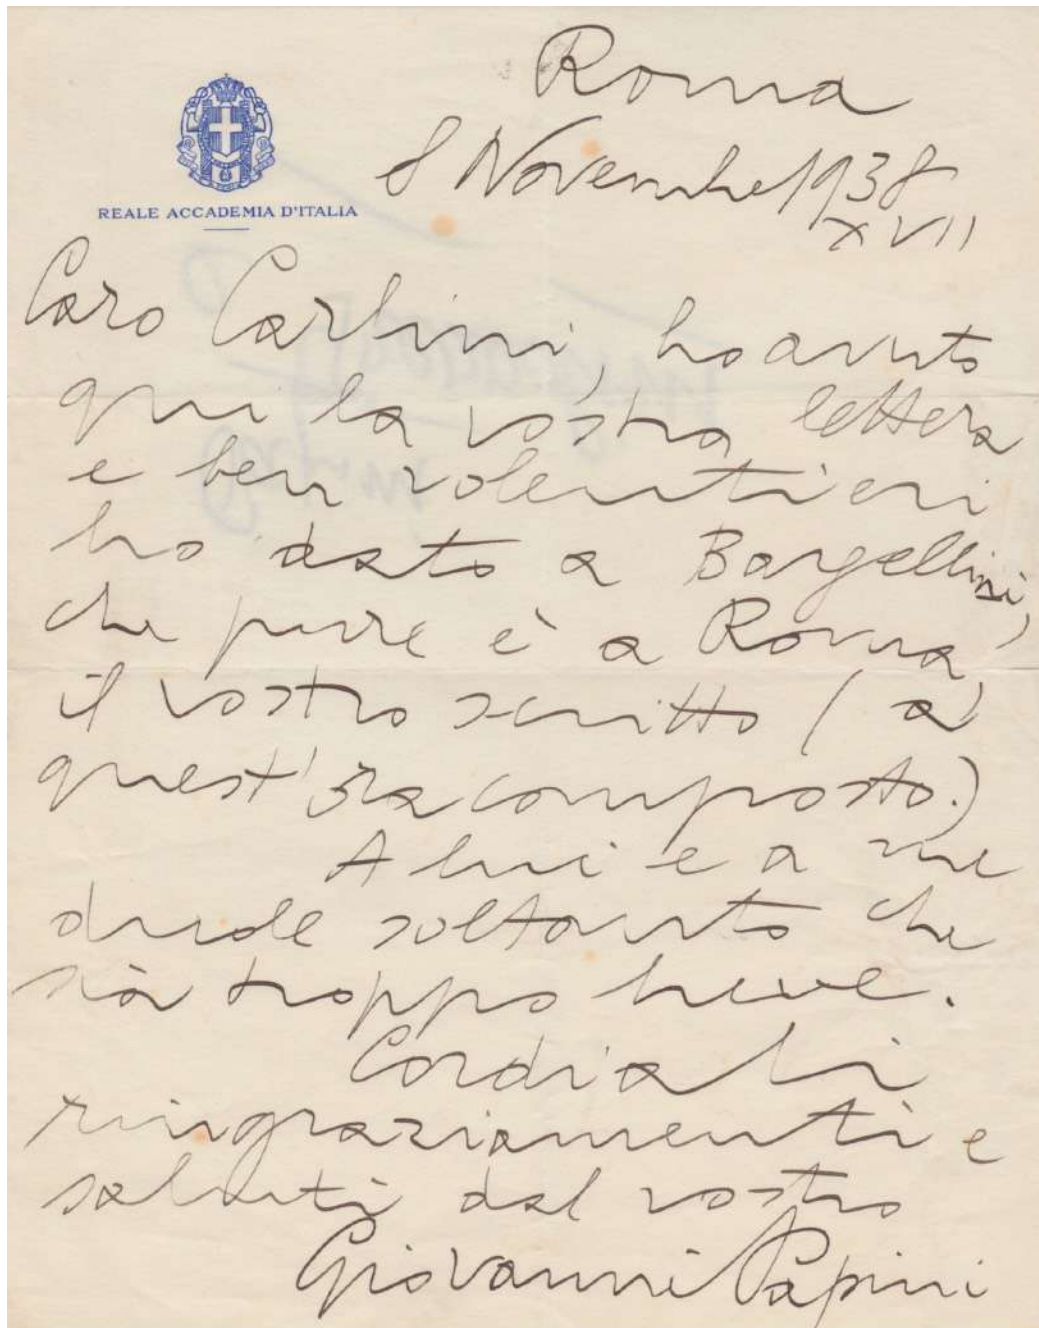 Roma
8 Novembre 1938
XVII
REALE ACCADEMIA D'ITALIA
Caro Carlini, ho avuto
qui la vostra lettera
e ben volentieri
ho dato a Bargellini,
che pure è a Roma,
il vostro scritto (a
quest'ora composto.)
A lui e a me
duole soltanto che
sia troppo breve.
Cordiali
ringraziamenti e
saluti dal vostro
Giovanni Papini